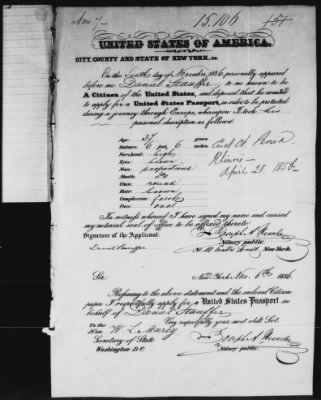 15,106
UNITED STATES OF AMERICA.
CITY, COUNTY AND STATE OF NEW YORK, ss.
On the Sixth day of November 1856, personally appeared
before me Daniel Stauffer to me known to be
A Citizen of the United States, and deposed that he wanted
to apply for a United States Passport, in order to be protected
during a journey through Europe, whereupon I took his
personal description as follows.
Age 37 years
Stature 6 feet 6
Forehead
Eyes
Nose proportioned
Mouth
Chin round
Illinois
Hair brown
April 28. 1856
Complexion
Face oval
In witness whereof I have signed my name and caused
my notarial seal of office to be affixed thereto
Signature of the Applicant: Joseph A
Notary public
Daniel Stauffer
New York.
Sir. New-York Nov. 6th 1856
Referring to the above statement and the enclosed Citizen
paper I respectfully apply for a United States Passport in
behalf of Daniel Stauffer
Very respectfully your most obdt Svt.
To the
Hon. W. L. Marcy
Joseph A.
Secretary of State
Notary public.
Washington D.C.